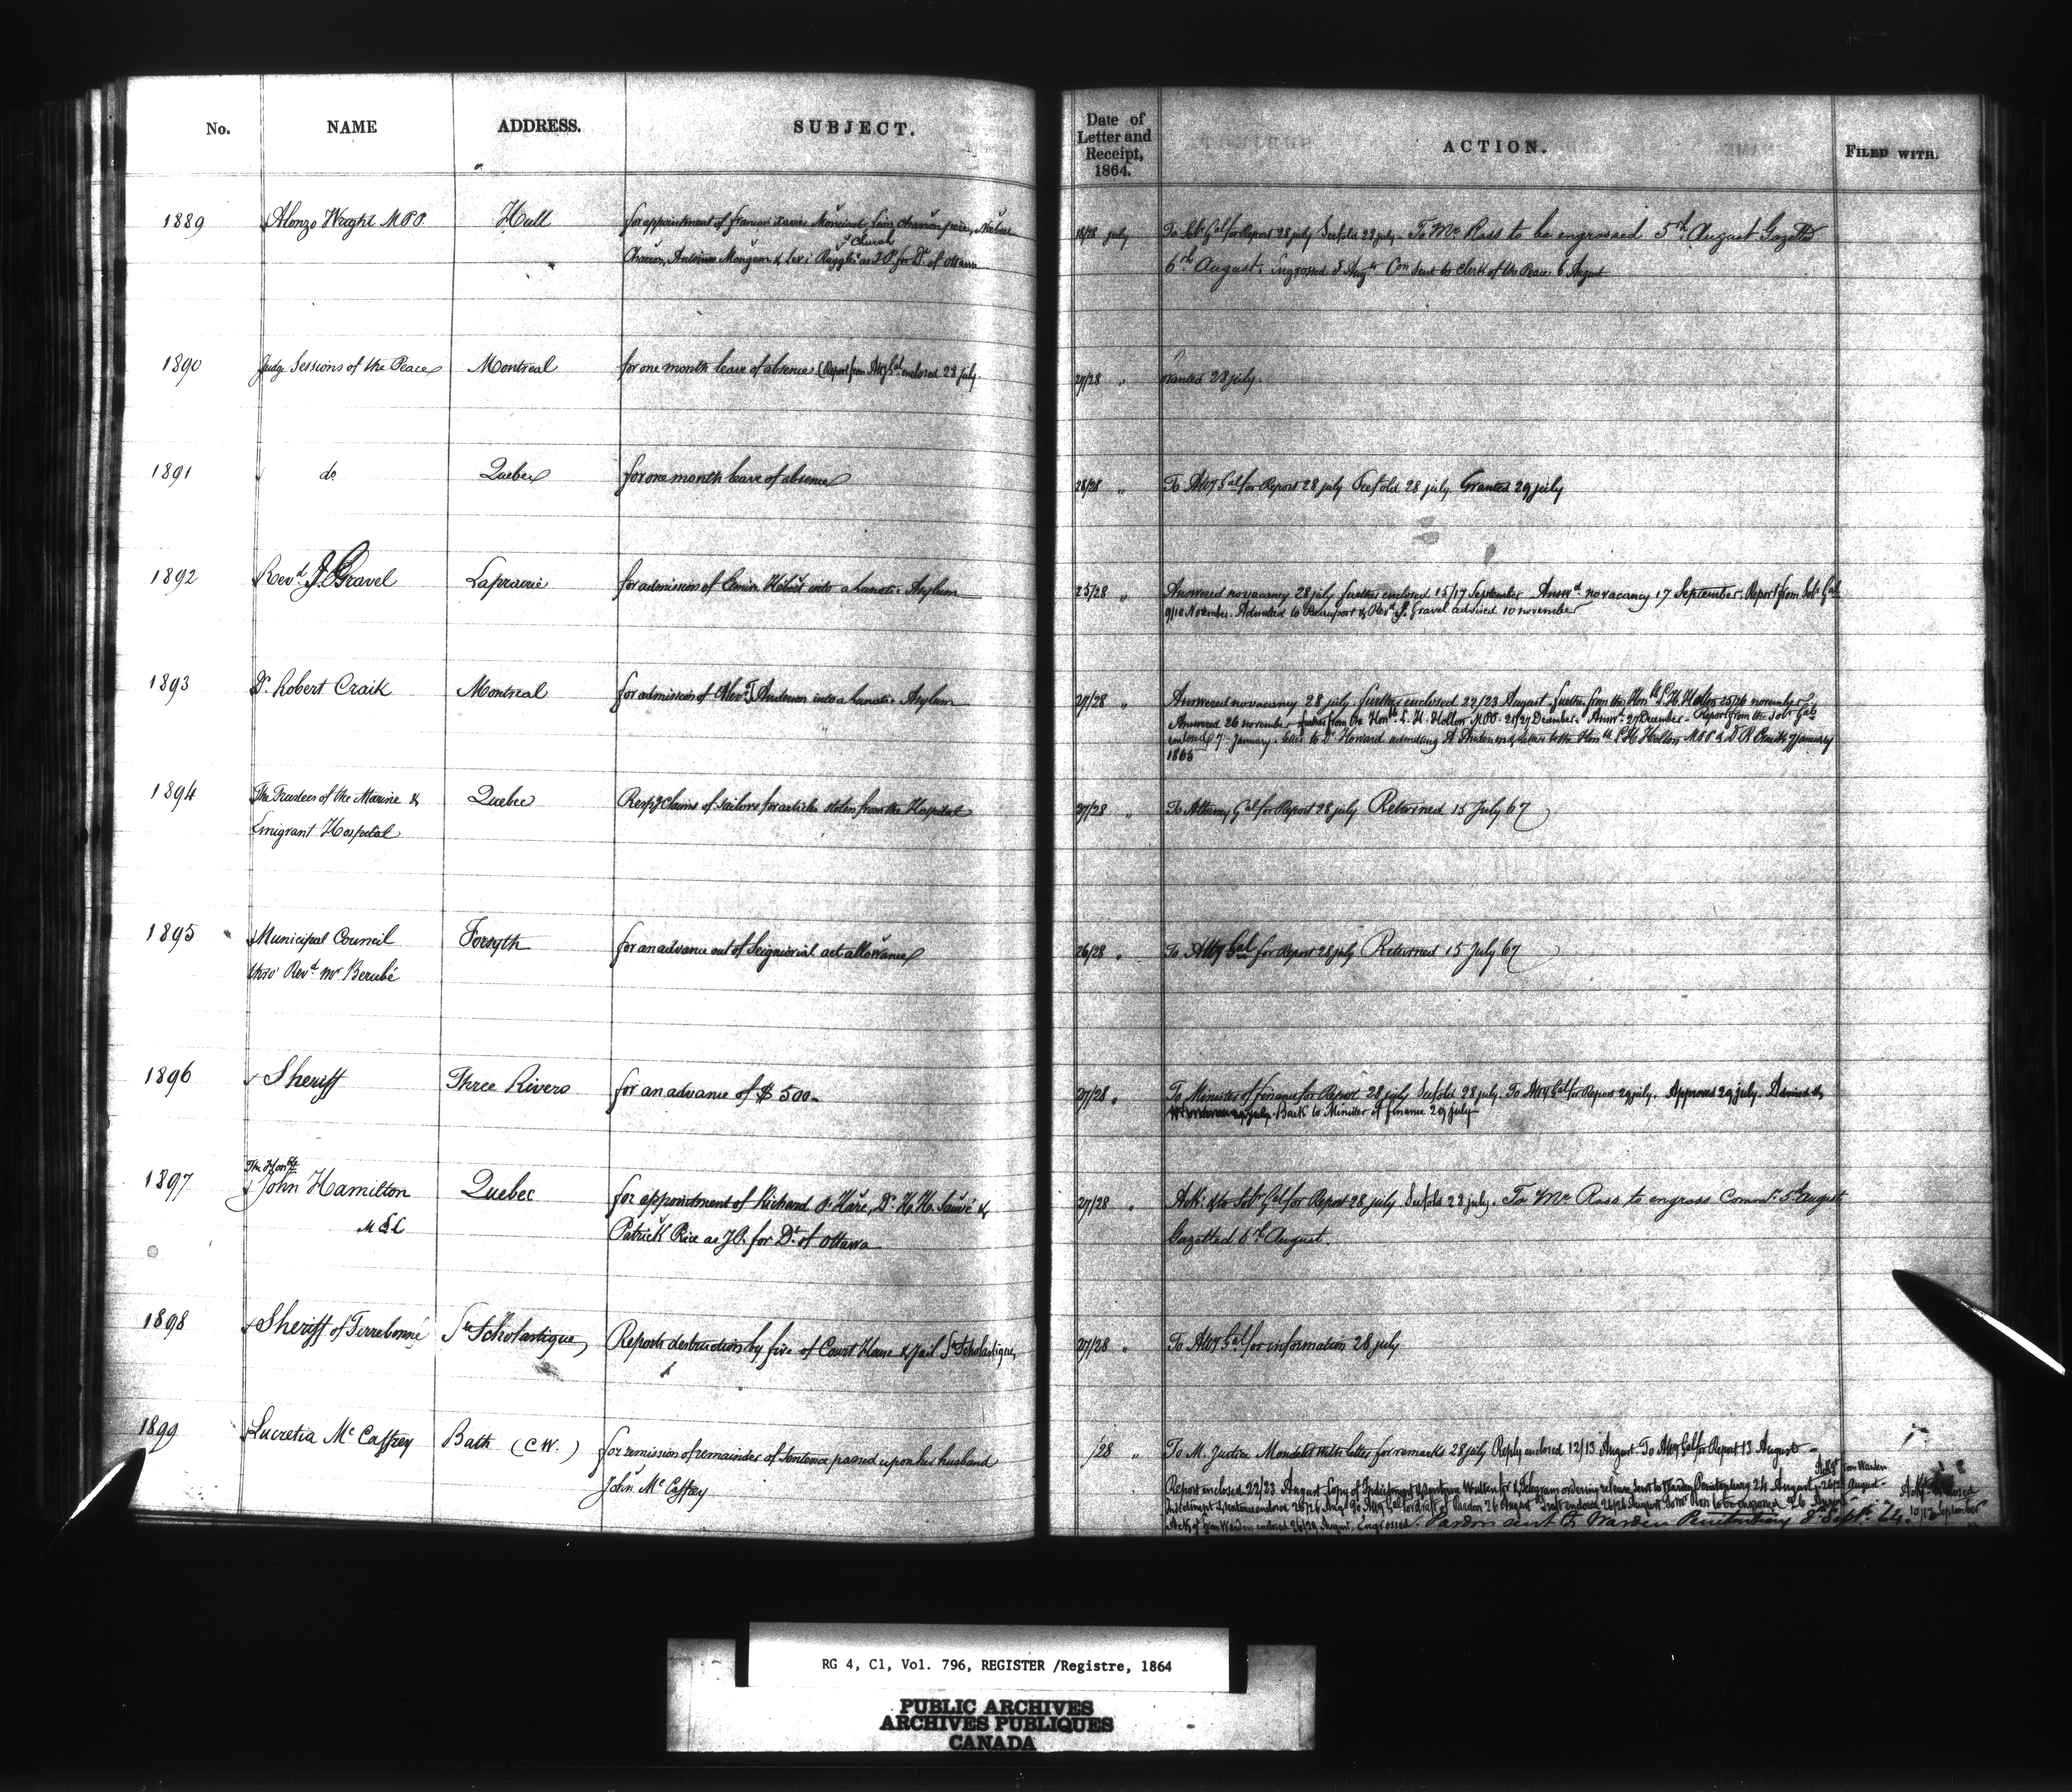 No. NAME ADDRESS. SUBJECT. Date of Letter and Receipt, 1864. ACTION. FILED WITH.
1889 Alonzo Wright M.P.P. Hull for appointment of francois Xavier père,
& Church
Antoine & as J.P. for Dt of Ottawa
18/28 july To Solr Gal for Report 28 july 28 july. To Mr Ross to be engrossed 5th August Gazetted
6th August. Engrossed 5 Augt Con sent to Clerk of the Peace 6 August
1890 Judge Sessions of the Peace Montreal for one month leave of absence (Report from Atty Gal enclosed 28 july.
27/28 " Granted 28 july.
1891 do Quebec for one month leave of absence
28/28 " To Atty Gal for Report 28 july 28 july. Granted 29 july
1892 Revd J. Gravel Laprairie for admission of Hébert into a Lunatic Asylum
25/28 " Answered no vacancy 28 july further enclosed 15/17 September Answd no vacancy 17 September. Report from Solr Gal
9/10 November. Admitted to Beauport & Revd J. Gravel advised 10 november
1893 Dr Robert Craik Montreal for admission of Anderson into a Lunatic Asylum
27/28 " Answered no vacancy 28 july. further enclosed 22/23 August. further from the Honble L. H. Holton 25/26 november
Answered 26 november further from the Honble L. H. Holton MPP. 21/27 December. Answd 27 December. Report from the Solr Gal
enclosed 7 January. letter to Dr Howard admitting A Anderson & letter to the Honble L H Holton MPP & D. R Craik 7 january
1865
1894 The Trustees of the Marine & Quebec Respg Claims of Sailors for articles stolen from the Hospital
Emigrant Hospital
27/28 " To Attorney Gal for Report 28 july Returned 15 July 67
1895 Municipal Council Forsyth for an advance out of Seigniorial act allowance
thro' Revd Mr Berubé
26/28 " To Atty Gal for Report 28 july Returned 15 July 67
1896 Sheriff Three Rivers for an advance of $500
27/28 " To Minister of finance for Report 28 july 28 july. To Atty Gal for Report 29 july. Approved 29 july.
Back to Minister of finance 29 july
1897 The Honble
John Hamilton Quebec for appointment of Richard O'Hare, Dr H. H. Sauvé &
MLC Patrick Rice as J.P. for Dt of Ottawa
27/28 " Ack. & to Solr Gal for Report 28 july 28 july. To Mr Ross to engross Commn 5th August
Gazetted 6th August.
1898 Sheriff of Terrebonne Ste Scholastique Reports destruction by fire of Court House & Jail Ste Scholastique
27/28 " To Atty Gal for information 28 july
1899 Lucretia Mc Caffrey Bath (C.W.) for remission of remainder of Sentence passed upon her husband
John Mc Caffrey
/28 " To M. Justice Mondelet with letter for remarks 28 july Reply enclosed 12/13 August. To Atty Gal for Report 13 August
Report enclosed 22/23 August Copy of Indictment & Sentence Written for & Telegram ordering release sent to Warden Penitentiary 24 August
Indictment & sentence enclosed 25/26 Augt To Atty Gal for draft of Pardon 26 August Draft enclosed 26/26 August To Mr Ross to be engrossed 26 August
Ack of from Warden enclosed 26/29 August. Engrossed. Pardon sent to Warden Penitentiary 8 Sept. 64.
10/12 September
RG 4, C1, Vol. 796, REGISTER /Registre, 1864
PUBLIC ARCHIVES
ARCHIVES PUBLIQUES
CANADA